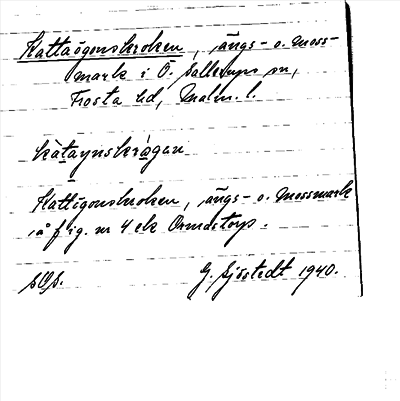 Kattaögonskroken, ängs- o. moss-
mark i Ö. Sallerups sn,
Frosta hd, Malm. l.
kàtaynskrǫgan
Kattögonskroken, ängs- o. mossmark
å fig. nr 4 ek Ormastorp.
G. Sjöstedt 1940.